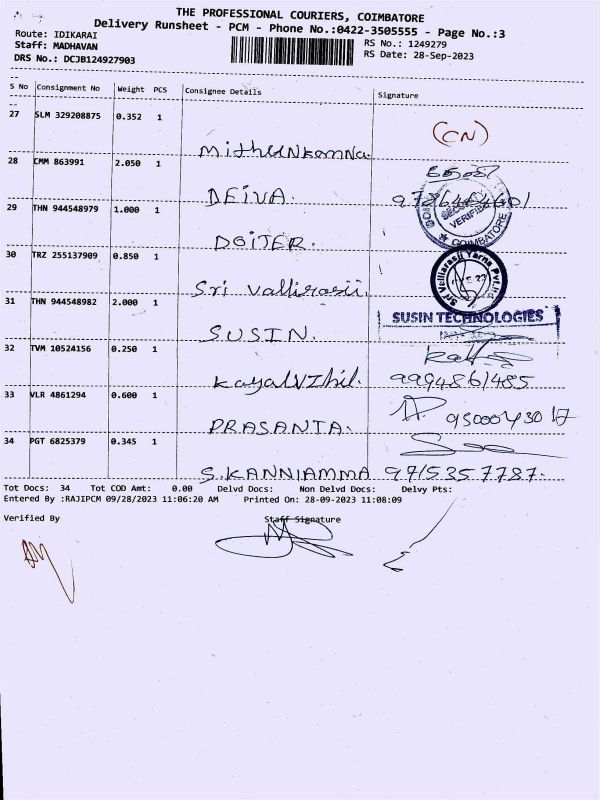 THE PROFESSIONAL COURIERS, COIMBATORE
Delivery Runsheet - PCM - Phone No.:0422-3505555 - Page No.:3
Route: IDIKARAI
RS No.: 1249279
Staff: MADHAVAN
RS Date: 28-Sep-2023
DRS No.: DCJB124927903
S No Consignment No Weight PCS Consignee Details Signature
27 SLM 329208875 0.352 1
(CN)
28 CMM 863991 2.050 1
DEIVA.
29 THN 944548979 1.000 1
SECURITY
VERIFIED
COIMBATORE
DOITER.
30 TRZ 255137909 0.850 1
Sri Valliarasii Yarns Pvt.Ltd
Sri Vallirasii.
31 THN 944548982 2.000 1
SUSIN TECHNOLOGIES
SUSIN.
32 TVM 10524156 0.250 1
KayalVIzhil. 9994861485
33 VLR 4861294 0.600 1
PRASANTA.
34 PGT 6825379 0.345 1
S.KANNIAMMA 9715357787.
Tot Docs: 34 Tot COD Amt: 0.00 Delvd Docs: Non Delvd Docs: Delvy Pts:
Entered By :RAJIPCM 09/28/2023 11:06:20 AM Printed On: 28-09-2023 11:08:09
Verified By Staff Signature